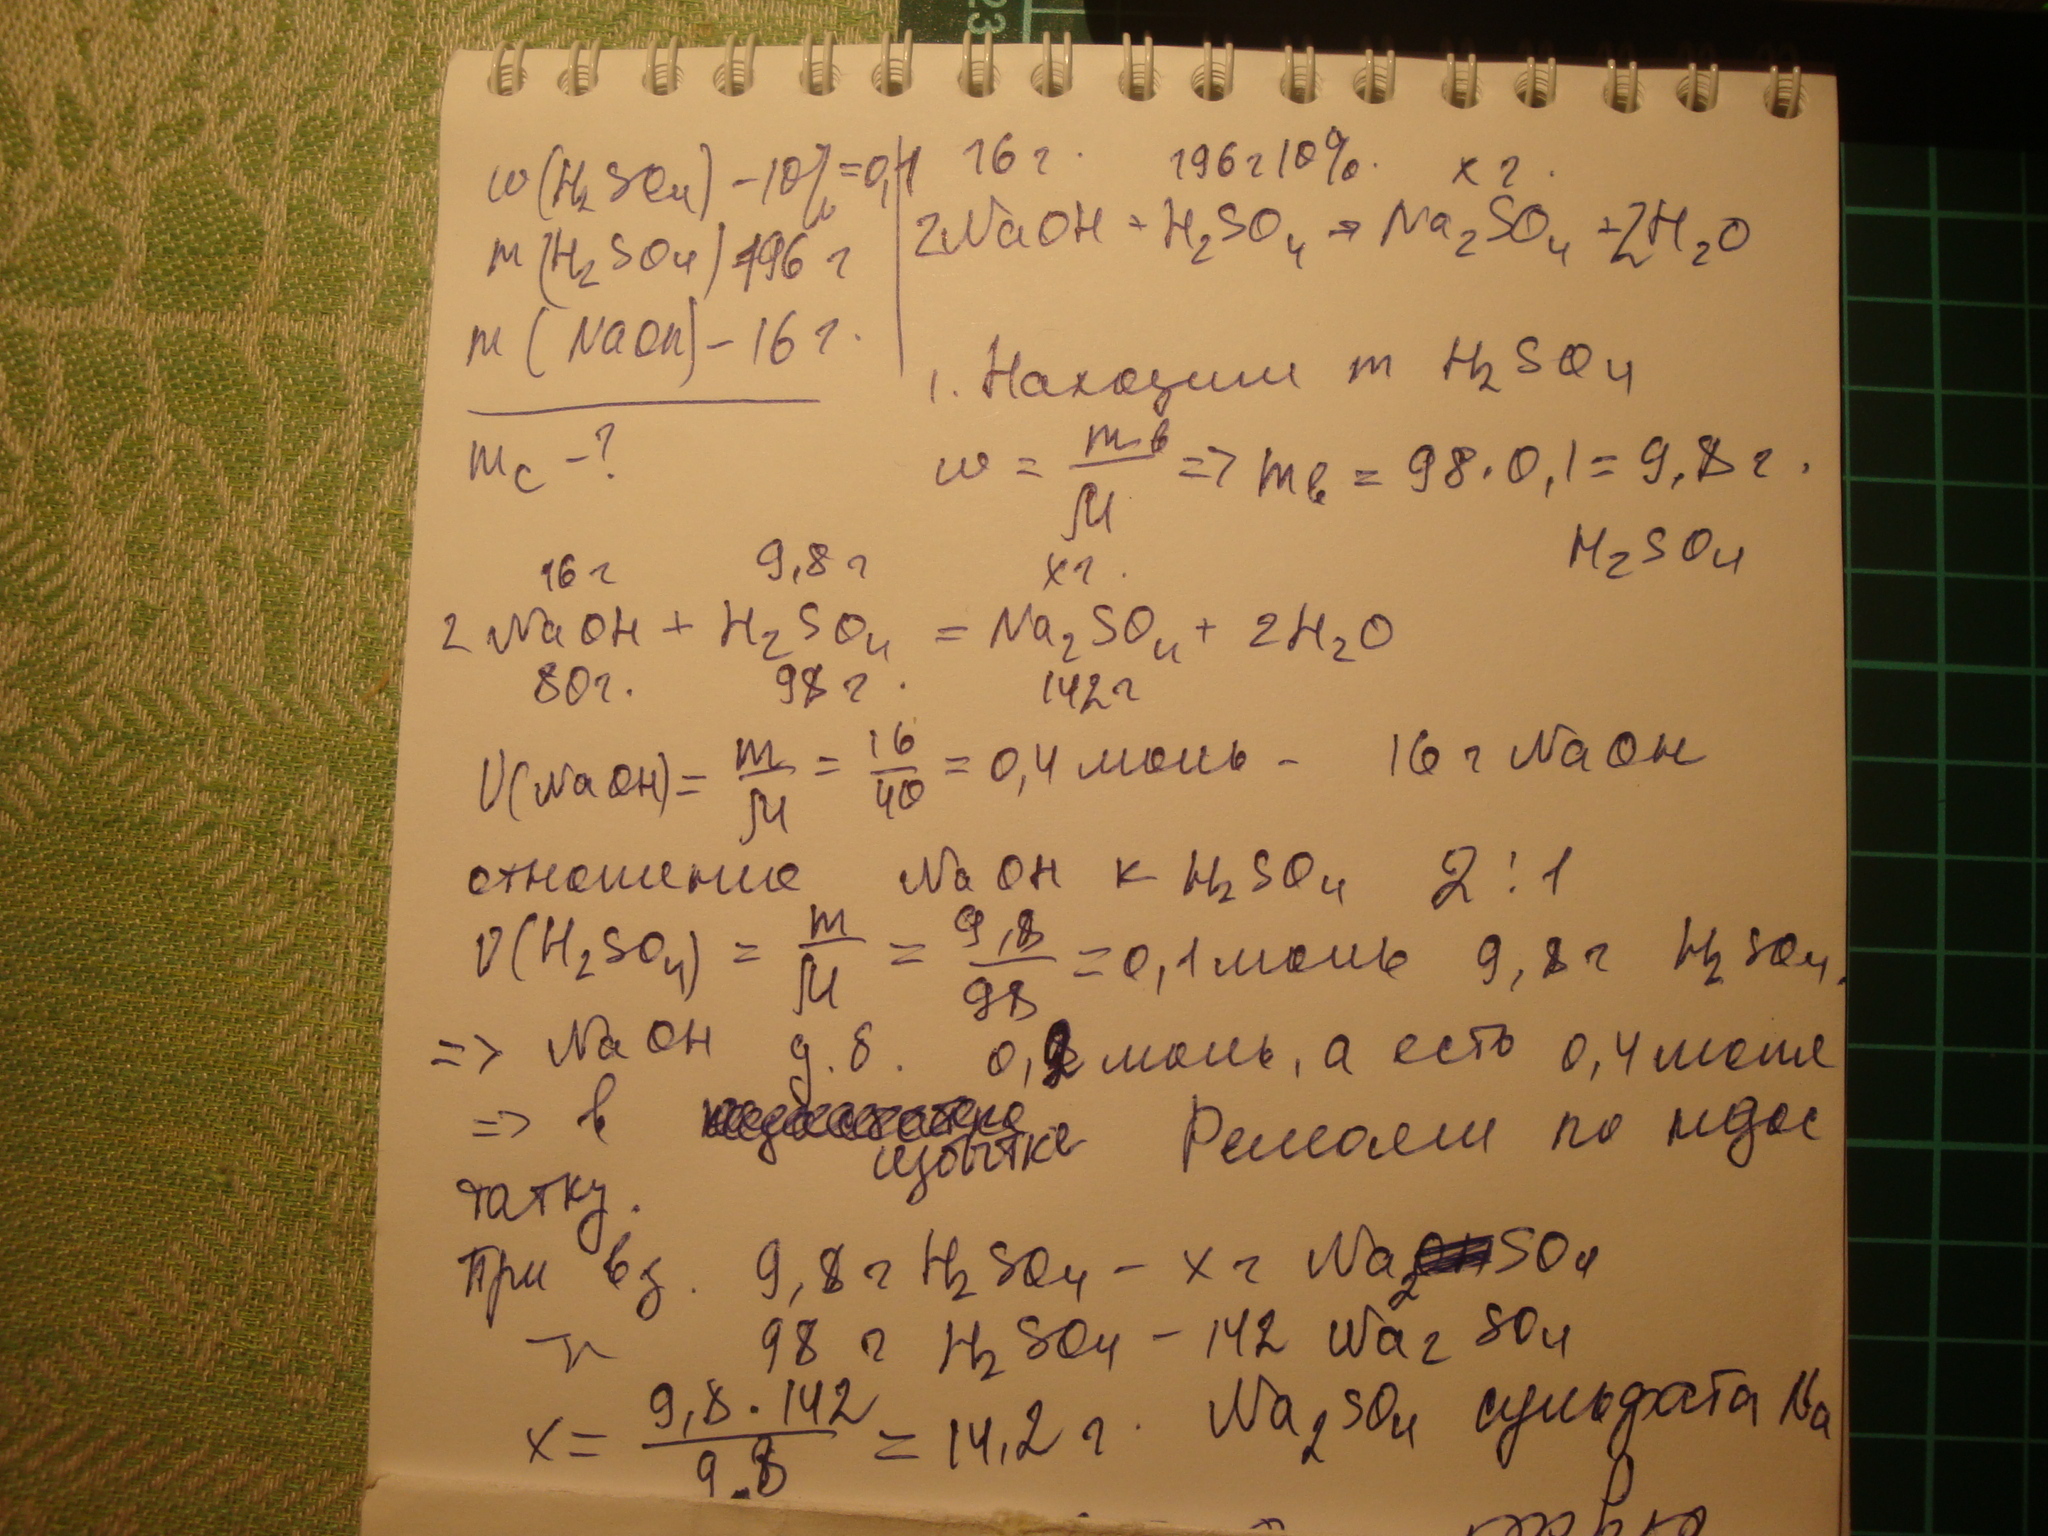 23
w(H₂SO₄) – 10% = 0,1
m(H₂SO₄) 196 г
m(NaOH) – 16 г.
mс – ?
16 г. 196 г 10%. x г.
2NaOH + H₂SO₄ → Na₂SO₄ + 2H₂O
1. Находим m H₂SO₄
w = mв/M => mв = 98 · 0,1 = 9,8 г.
H₂SO₄
16 г 9,8 г x г.
2NaOH + H₂SO₄ = Na₂SO₄ + 2H₂O
80 г. 98 г. 142 г
ν(NaOH) = m/M = 16/40 = 0,4 моль – 16 г NaOH
отношение NaOH к H₂SO₄ 2 : 1
ν(H₂SO₄) = m/M = 9,8/98 = 0,1 моль 9,8 г H₂SO₄.
=> NaOH д. б. 0,2 моль, а есть 0,4 моля
=> в избытке Решаем по недос
татку.
При вз. 9,8 г H₂SO₄ – x г Na₂SO₄
98 г H₂SO₄ – 142 Na₂SO₄
x = 9,8 · 142/98 = 14,2 г. Na₂SO₄ сульфата Na